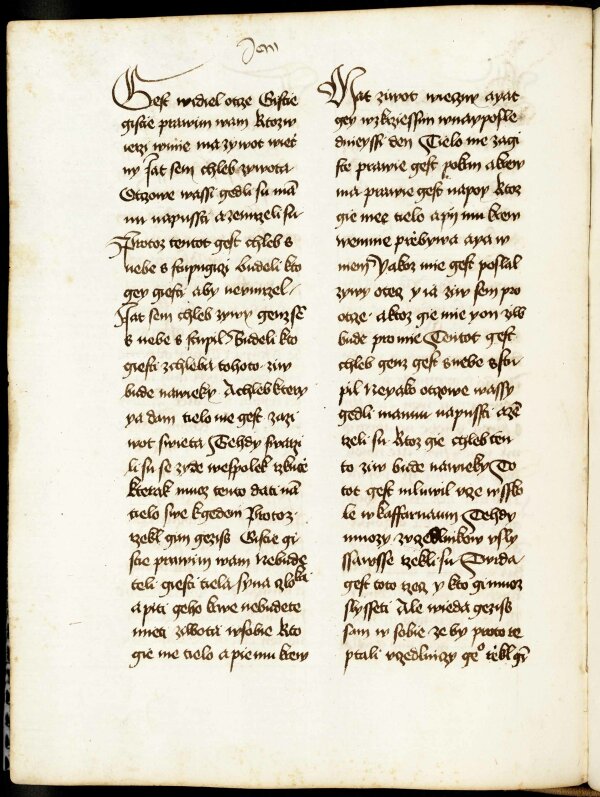 Jan
Gest widiel otze Gistie
gistie prawim wam Ktozw
ierzi wmie ma zywot wiecz
ny Jat sem chleb zywota
Otzowe wassi gedli su man
nu napussti azemrzeli su
Protoz tentot gest chleb s
nebe s stupugiczi budeli kto
gey giesti aby neumrzel
Jat sem chleb zywy genz sem
s nebe s stupil Budeli kto
giesti zchleba tohoto ziw
bude nawieky Achleb ktery
ya dam tielo me gest zazi
wot swieta Tehdy swazi
li su se zyde wespolek rzkucze
kterak muoz tento dati nam
tielo swe kgedem Protoz
rzekl gim gezijs Gistie gi
stie prawim wam Nebude
teli giesti tiela syna czlo
a piti geho krwe nebudete
mieti ziwota wsobie Kto
gie me tielo a pie mu krew
Mat ziwot wieczny ayat
gey wzkrziessim wnayposle
dnieyssi den Tielo me zagi
ste prawie gest pokrm akrew
ma prawie gest napoy Ktoz
gie mee tielo apij mu krew
wemnie prziebywa aya w
niem Yakoz mie gest poslal
zywy otecz y ia ziw sem pro
otcze aktoz gie mie yon ziw
bude pro mie Tentot gest
chleb genz gest snebe s stu
pil Neyako otzowe wassy
gedli mannu napussti azem
rzeli su Ktoz gie chleb ten
to ziw bude nawieky To
tot gest mluwil vcze wssko
le wkaffarnaum Tehdy
mnozy zvczedlnikow vsly
ssawsse rzekli su Twrda
gest toto rzecz y kto gi muoz
slysseti Ale wieda gezijs
sam w sobie ze by proto re
ptali vczedlniczy geo rzekl gim